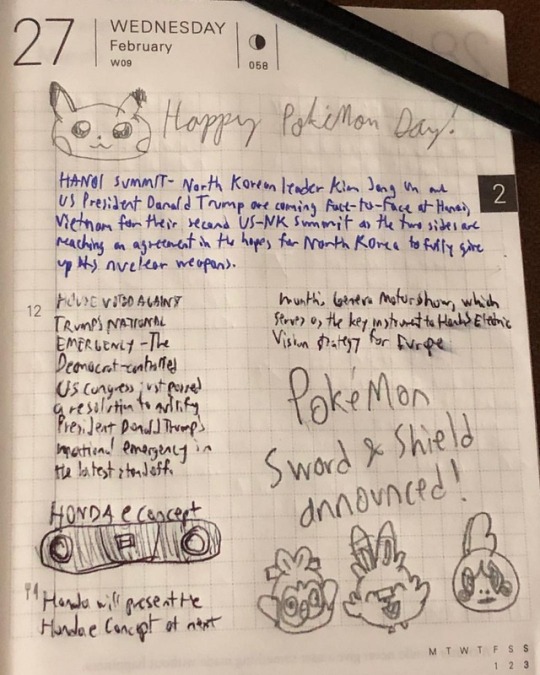 27
WEDNESDAY
February
W09
058
Happy Pokémon Day!
HANOI SUMMIT- North Korean leader Kim Jong Un and
US President Donald Trump are coming face-to-face at Hanoi,
Vietnam for their second US-NK summit as the two sides are
reaching an agreement in the hopes for North Korea to fully give
up its nuclear weapons.
2
12
HOUSE VOTED AGAINST
TRUMP'S NATIONAL
EMERGENCY - The
Democrat-controlled
US Congress just passed
a resolution to nullify
President Donald Trump's
national emergency in
the latest standoff.
HONDA e Concept
Honda will present the
Honda e Concept at next
month's Geneva Motor Show, which
serves as the key instrument to Honda's Electric
Vision strategy for Europe
Pokémon
Sword & Shield
announced!
M T W T F S S
1 2 3